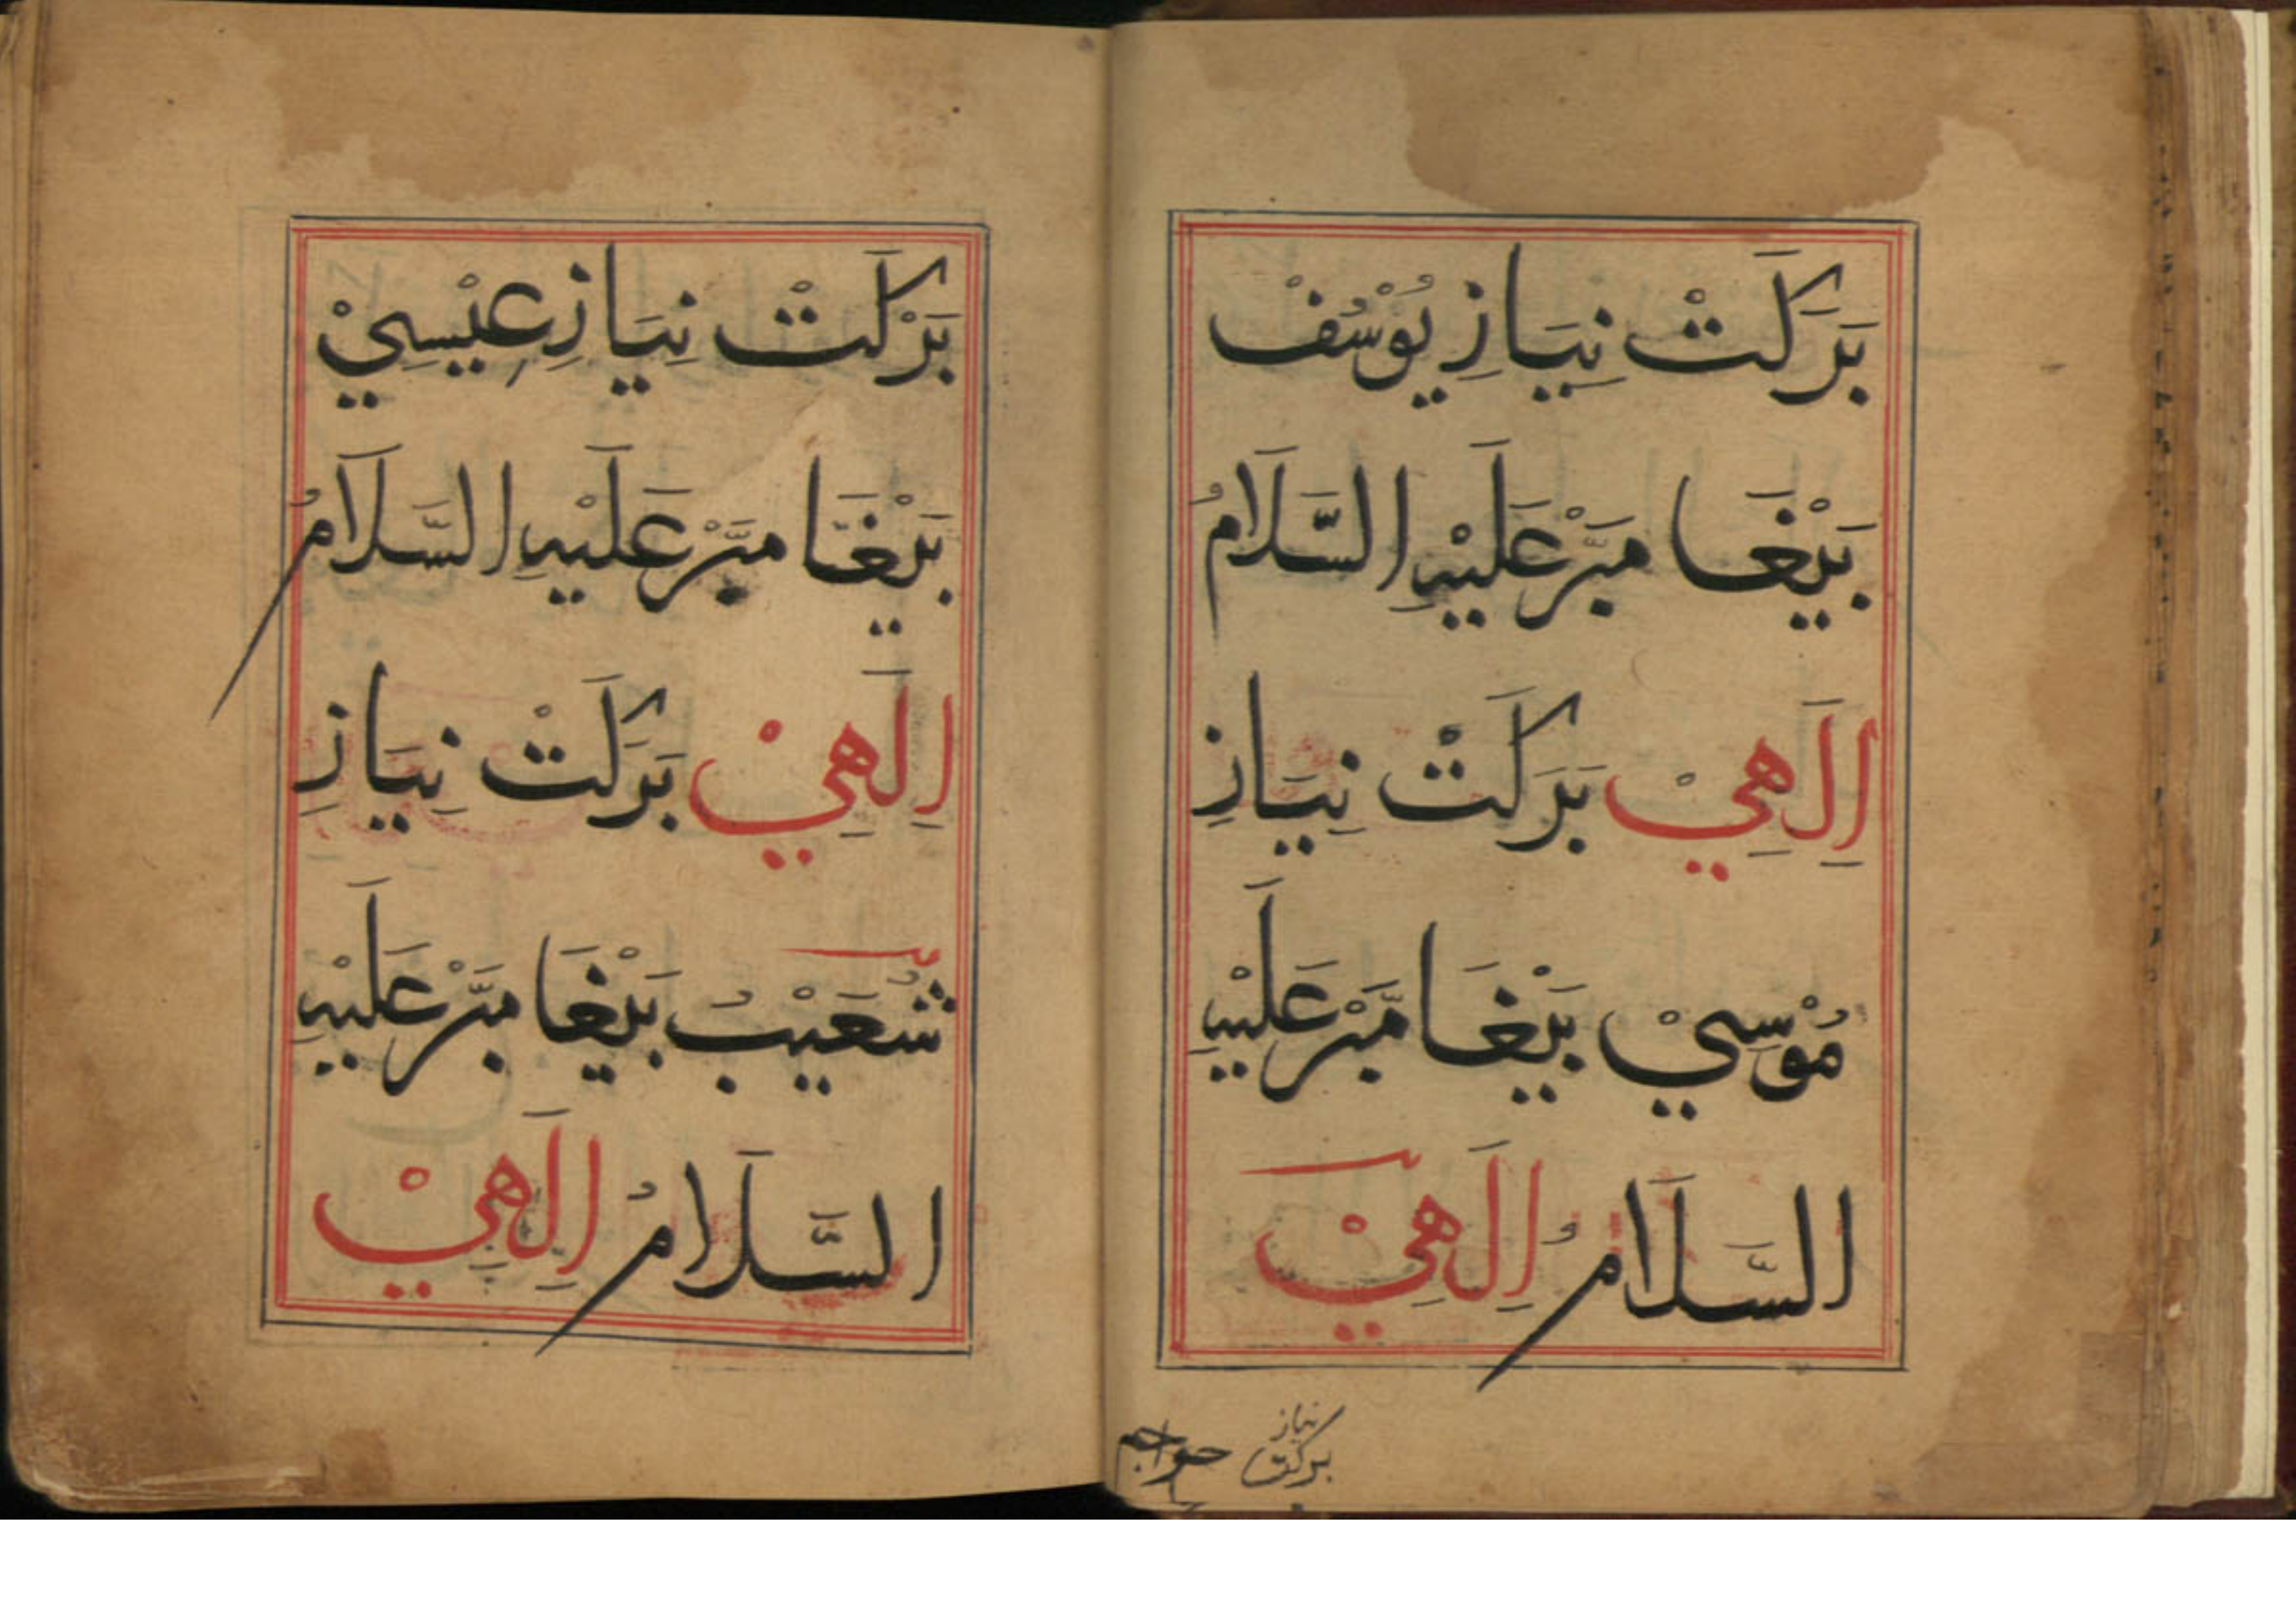 بَرَكَتْ نِيَازِ يُوْسُفْ
بَيْغَا مَبَّرْ عَلَيْهِ السَّلَامُ
اِلَهِيْ بَرَكَتْ نِيَازِ
مُوْسِيْ بَيْغَا مَبَّرْ عَلَيْهِ
السَّلَامُ اِلَهِيْ
نیاز
برکت
بَرْكَتْ نِيَازِ عِيْسِيْ
بَيْغَا مَبَّرْ عَلَيْهِ السَّلَامُ
اِلَهِيْ بَرَكَتْ نِيَازِ
شُعَيْبُ بَيْغَا مَبَّرْ عَلَيْهِ
السَّلَامُ اِلَهِيْ